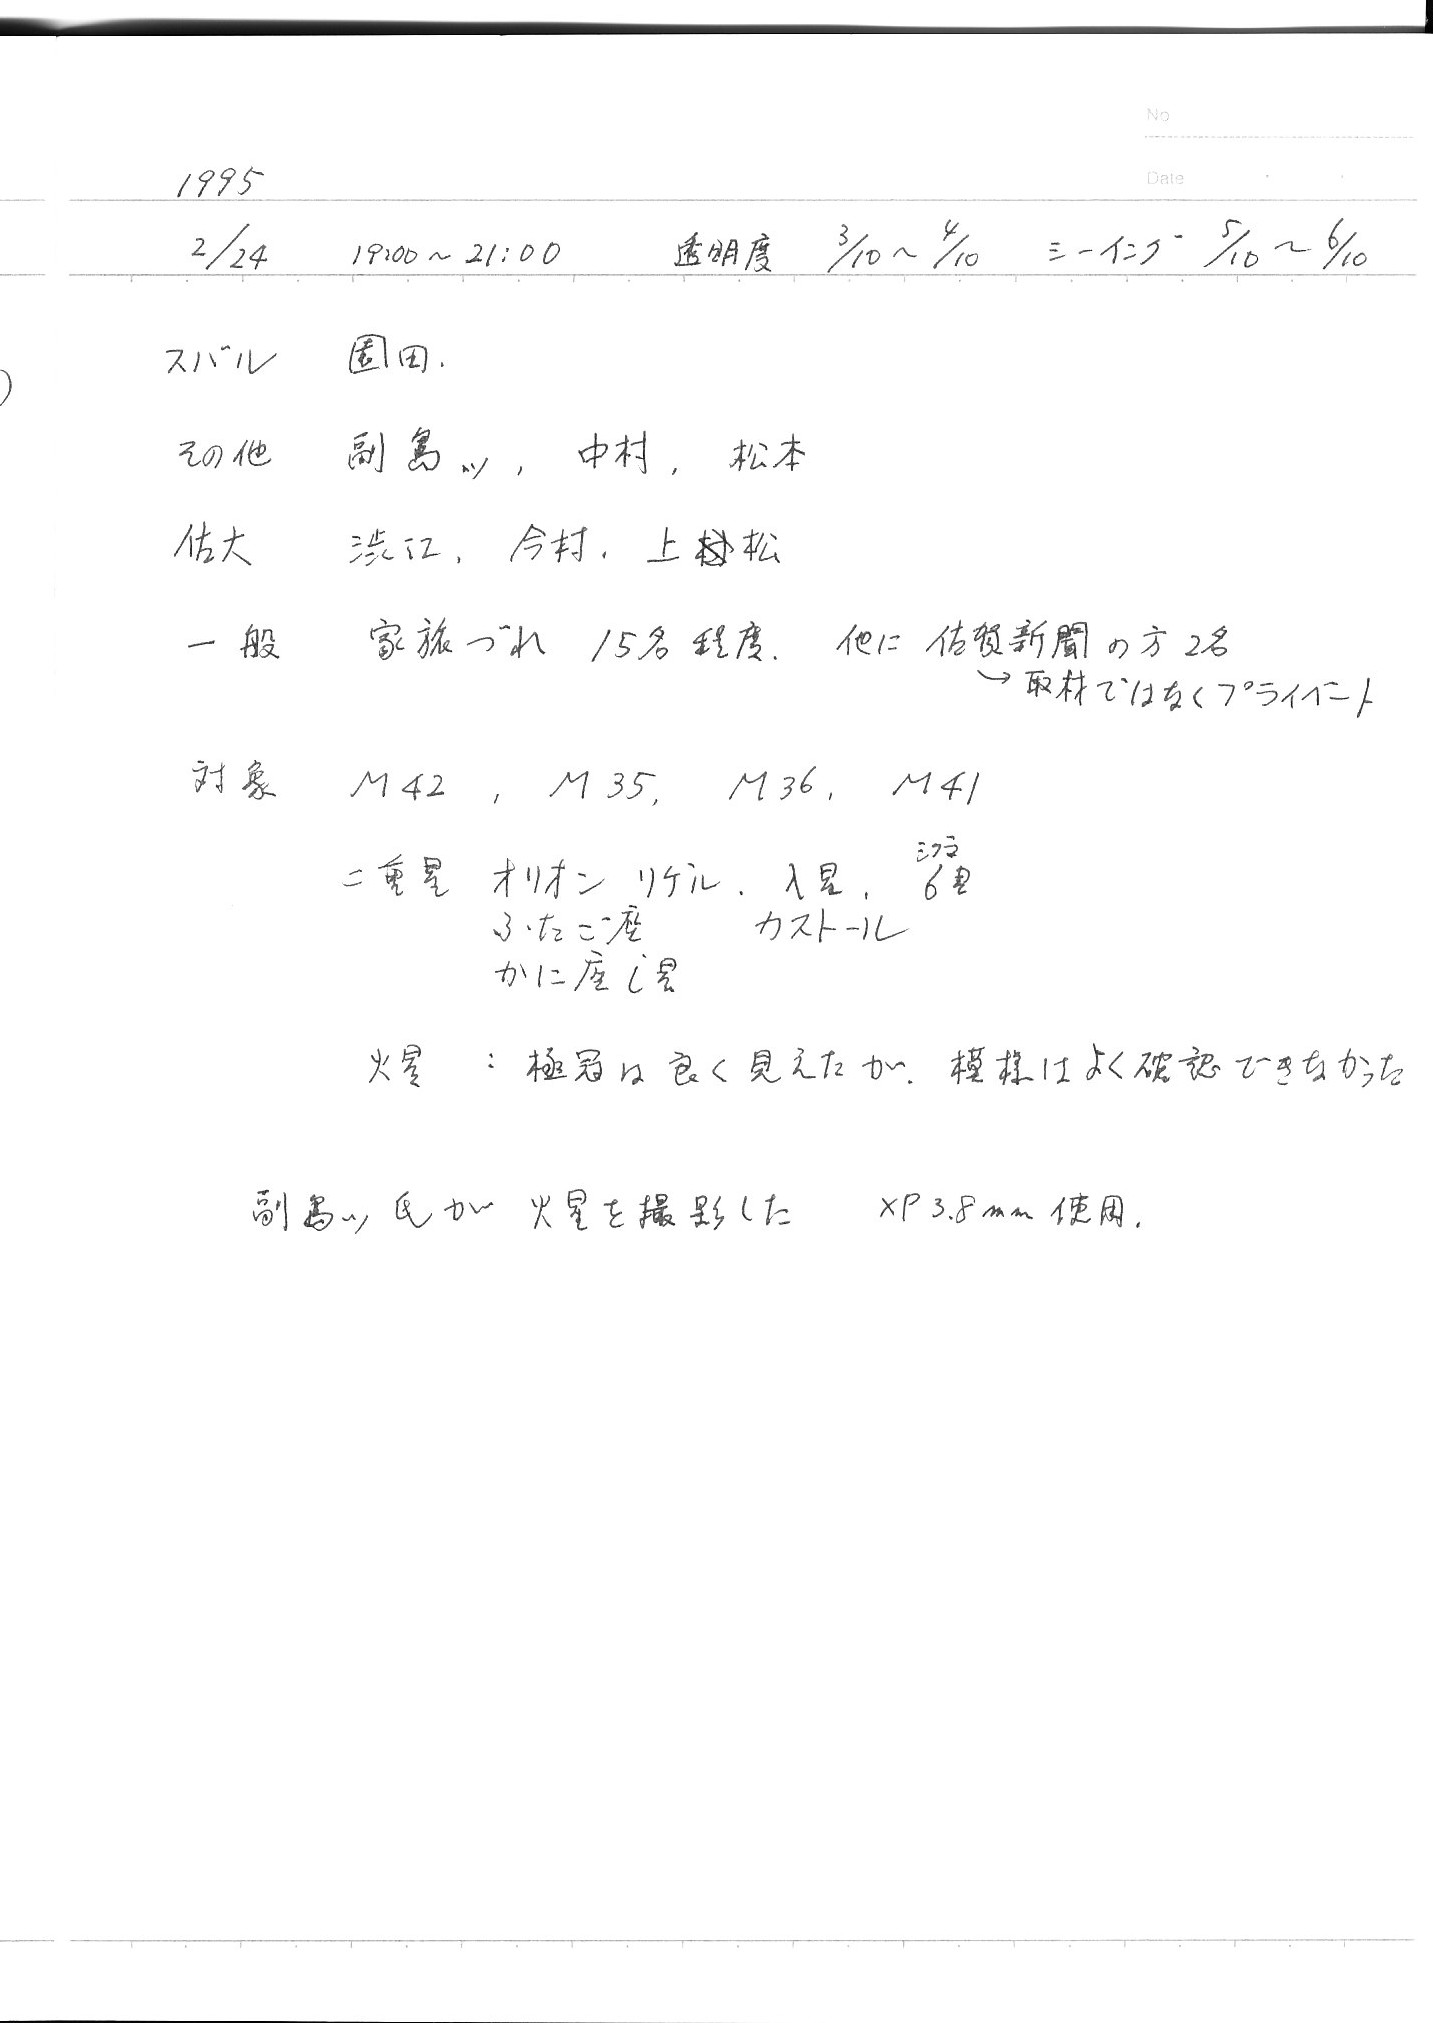 No
Date
1995
2/24 19:00～21:00 透明度 3/10～4/10 シーイング 5/10～6/10
スバル 園田.
その他 副島ッ, 中村, 松本
佐大 渋江, 今村, 上松
一般 家族づれ 15名程度. 他に 佐賀新聞の方2名
→取材ではなくプライベート
対象 M42, M35, M36, M41
二重星 オリオン リゲル. λ星, 6重
ふたご座 カストール
かに座 ι星
火星 : 極冠は良く見えたが. 模様はよく確認できなかった
副島ッ氏が 火星を撮影した XP3.8mm使用.